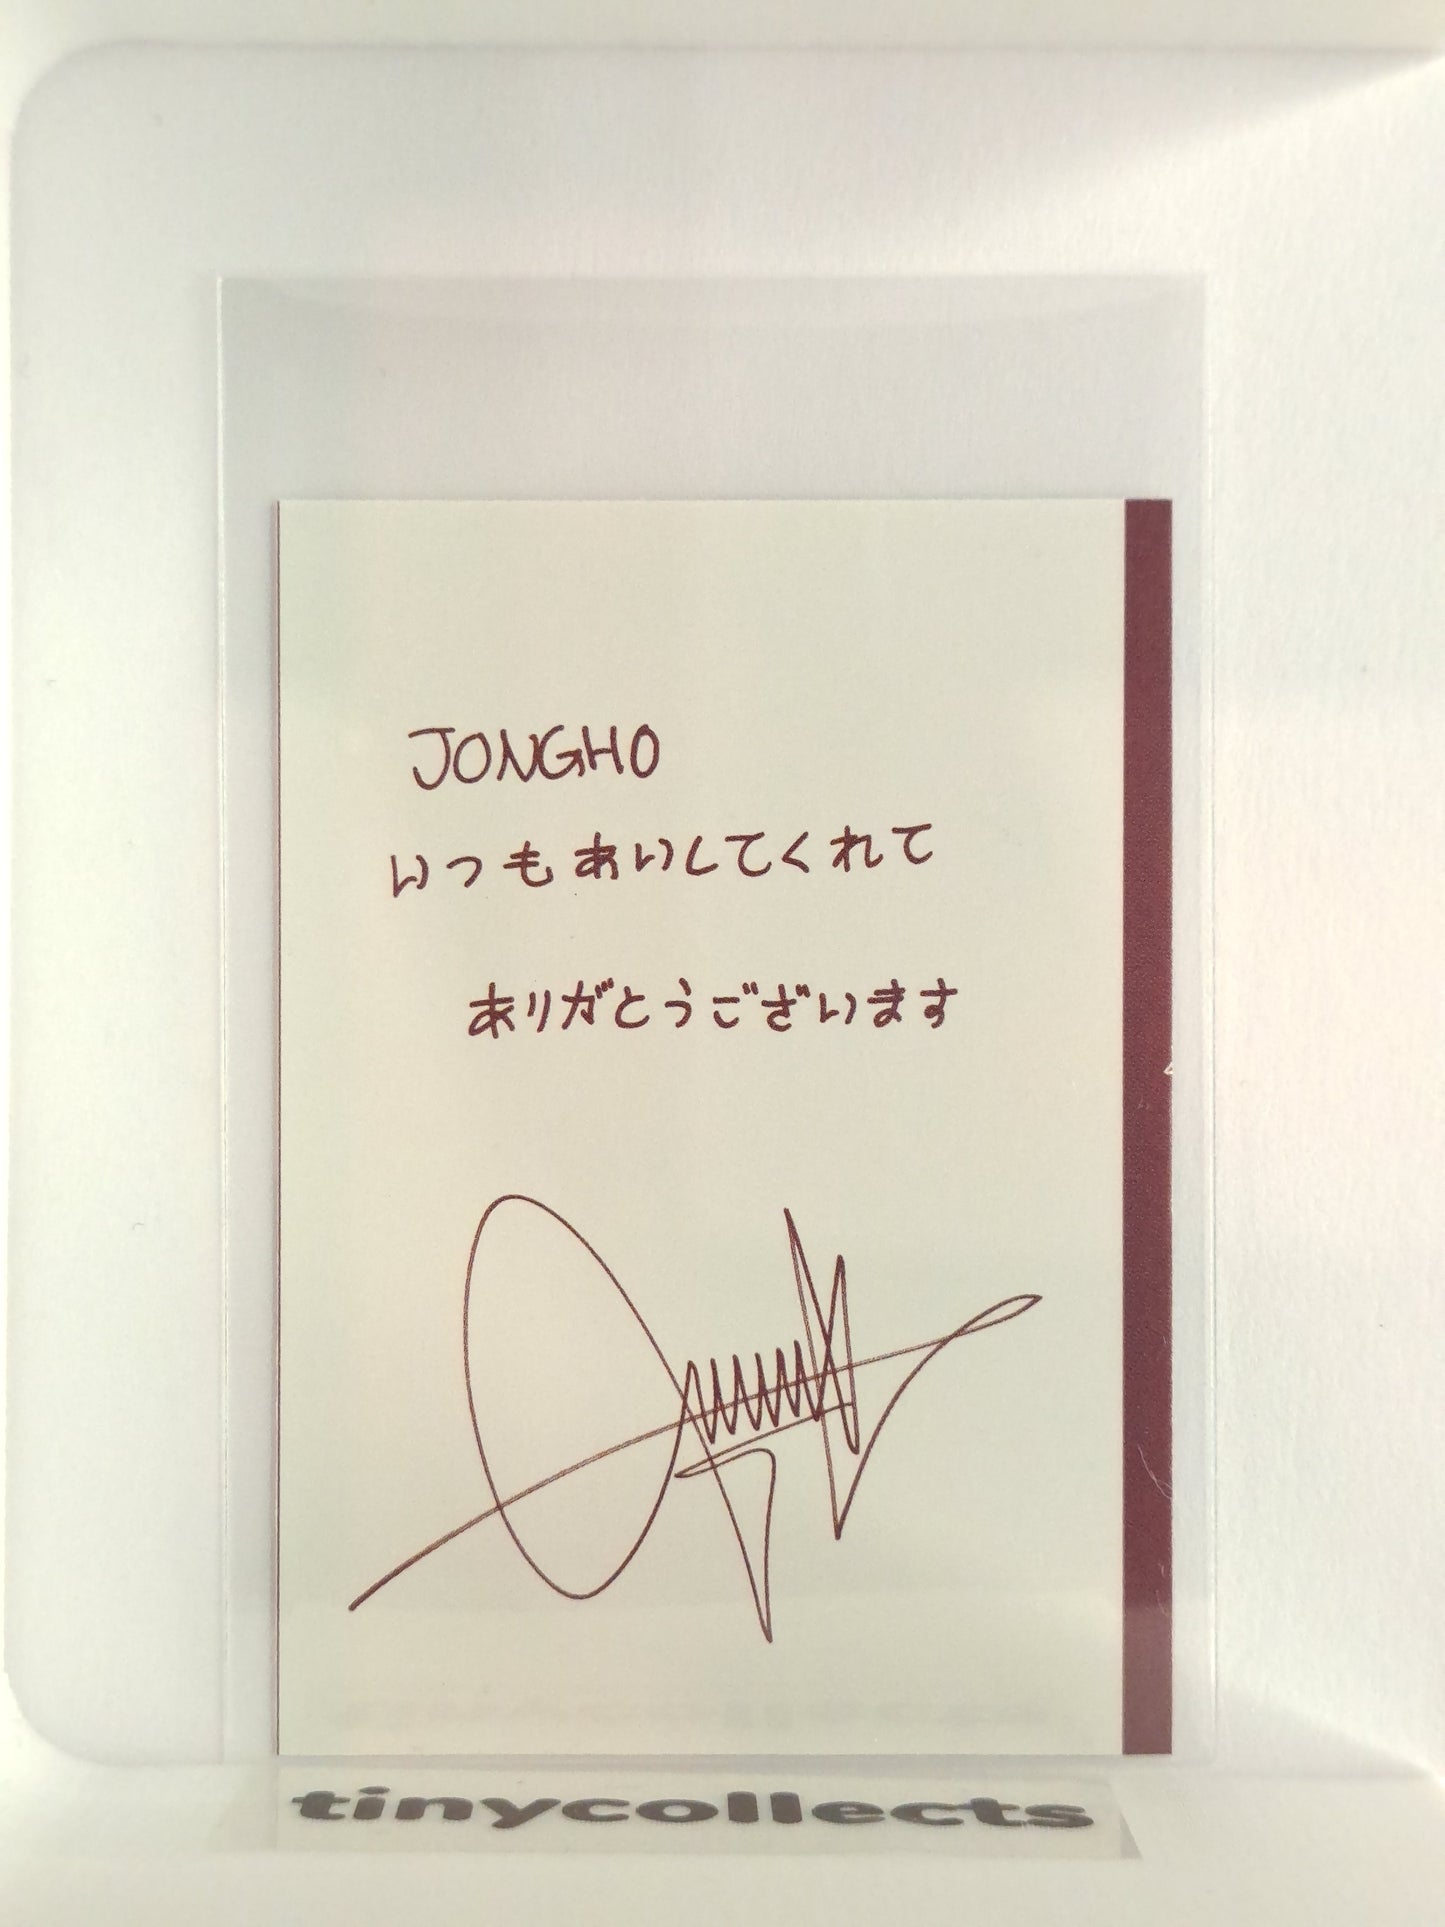 JONGHO
いつもあいしてくれて
ありがとうございます
tinycollects